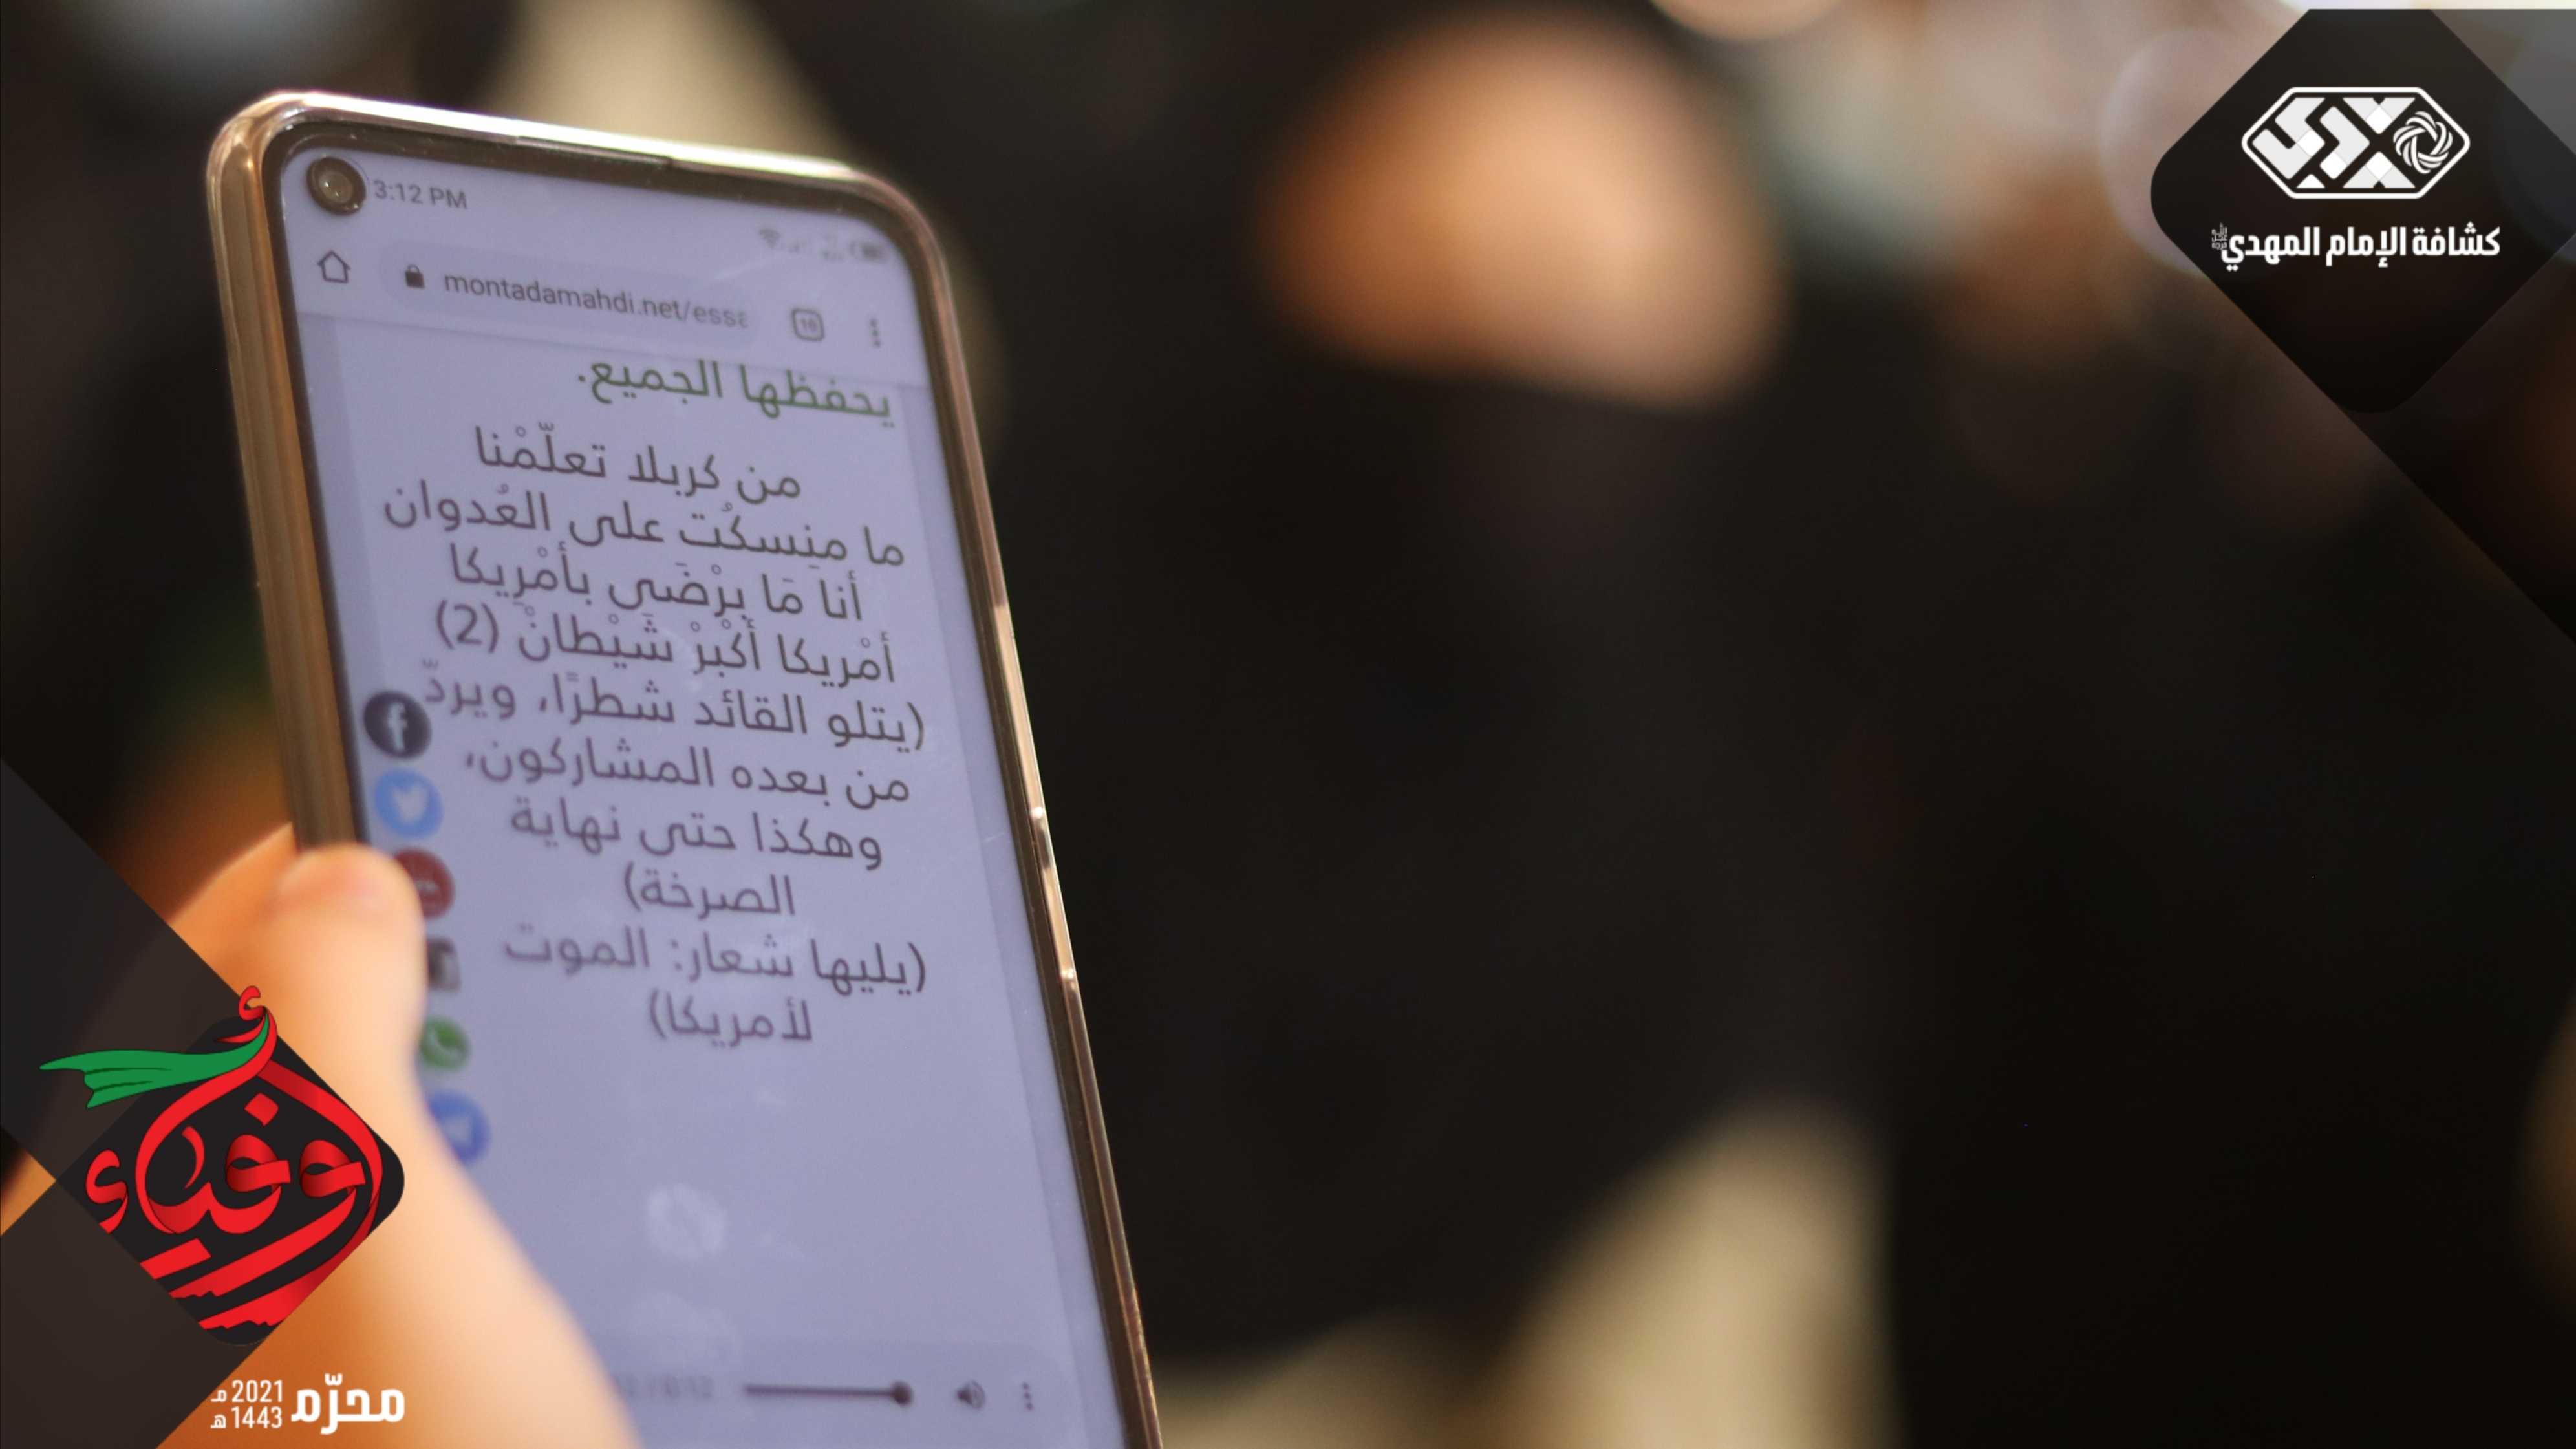 3:12 PM
montadamahdi.net/essa
18
يحفظها الجميع.
من كربلا تعلّمْنا
ما منِسكُت على العُدوان
أنا مَا بِرْضَى بأمْرِيكا
أمْريكا أكْبرْ شَيْطانْ (2)
(يتلو القائد شطرًا، ويردّ
من بعده المشاركون،
وهكذا حتى نهاية
الصرخة)
(يليها شعار: الموت
لأمريكا)
كشافة الإمام المهدي
أوفياء
محرّم
2021 مـ
1443 هـ